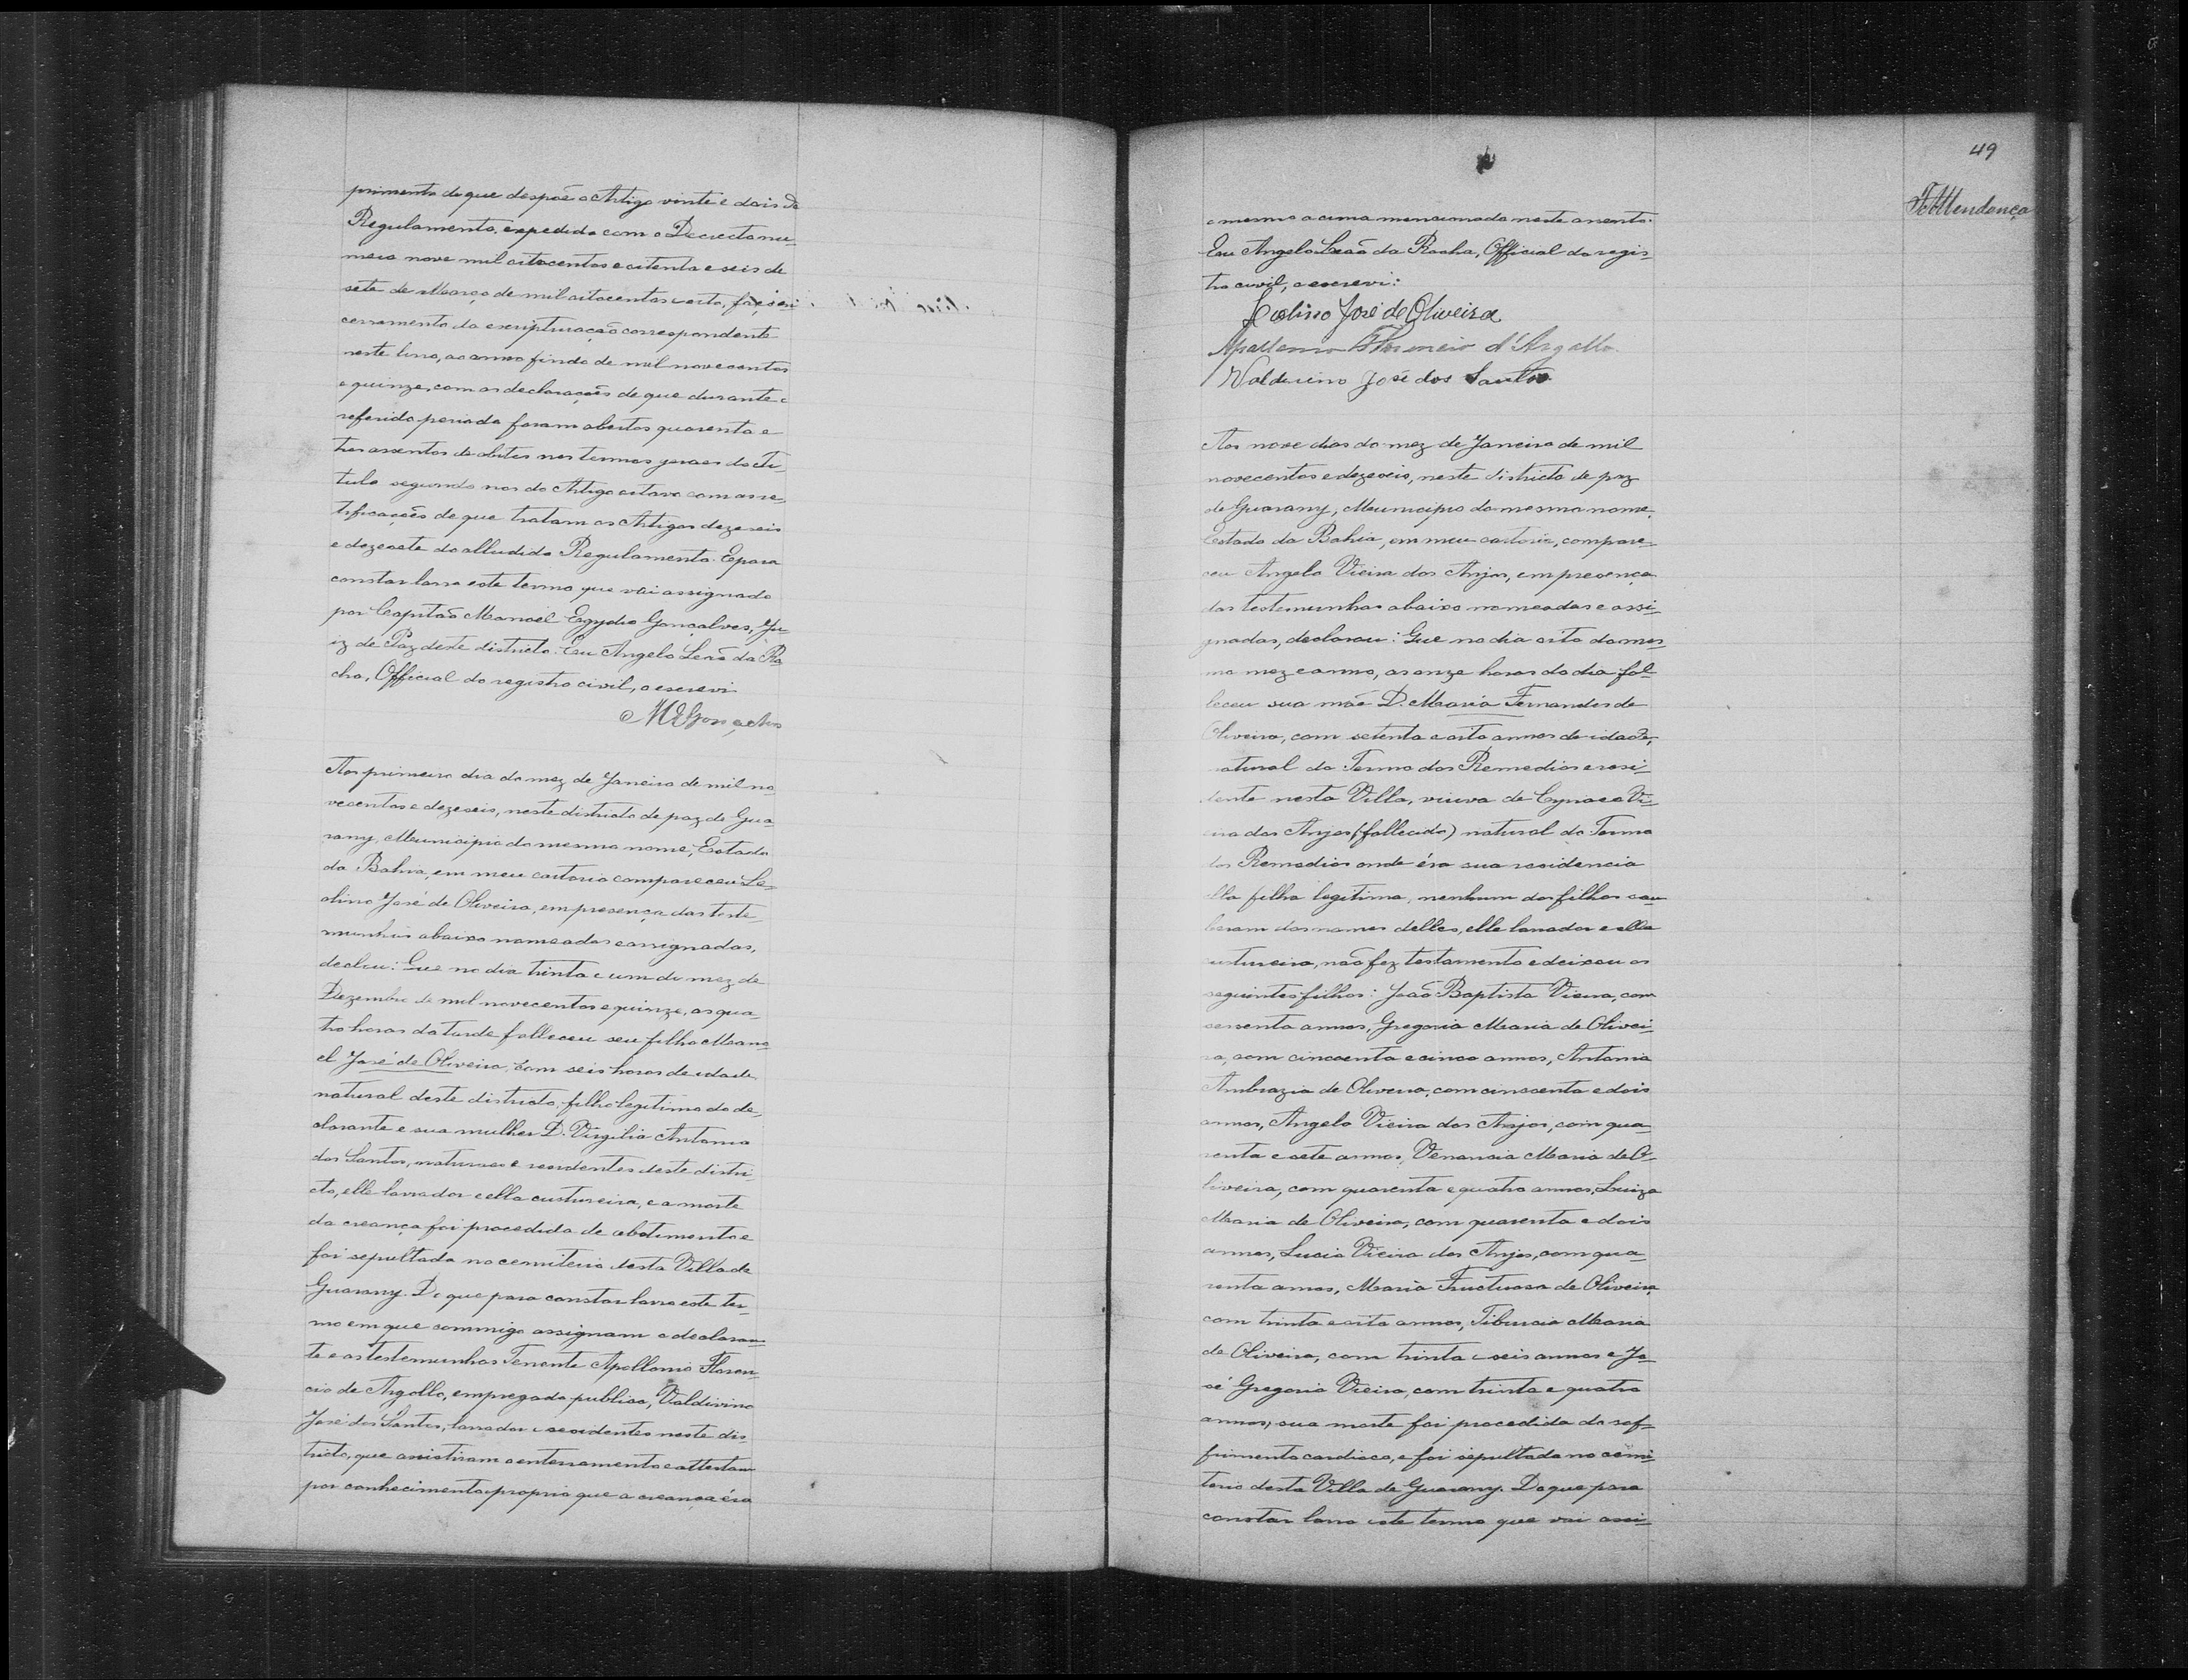 primento do que despoẽ o Artigo vinte e dois do
Regulamento expedido com o Decreto nu-
mero nove mil oitocentos e oitenta e seis de
sete de Março de mil oitocentos e oito, faço en
cerramento da escripturação correspondente
neste livro, ao anno findo de mil novecentos
e quinze, com as declarações de que durante o
referido periodo foram abertos quarenta e
tres assentos de obitos nos termos geraes do Ti-
tulo segundo nos do Artigo oitavo com as re-
tificações de que tratam os Artigos dezeseis
e dezesete do alludido Regulamento. E para
constar lavro este termo que vai assignado
por Capitão Manoel Egydio Gonçalves, Ju-
iz de Paz deste districto. Eu Angelo Leaõ da Ro
cha, Official do registro civil, o escrevi
MEGonçalves
Aos primeiro dia do mez de Janeiro de mil no-
vecentos e dezeseis, neste districto de paz de Gua-
rany, Municipio do mesmo nome, Estado
da Bahia, em meu cartorio compareceu Le-
olino José de Oliveira, em presença das teste
munhas abaixo nomeadas e assignadas,
declou: Que no dia trinta e um do mez de
Dezembro de mil novecentos e quinze, as qua-
tro horas da tarde falleceu seu filho Mano-
el José de Oliveira, com seis horas de idade
natural deste districto, filho legitimo do de-
clarante e sua mulher D. Virgilia Antonia
dos Santos, naturaes e residentes deste distri
cto, elle lavrador e ella custureira, e a morte
da creança foi procedida de abatimento e
foi sepultada no cemiterio desta Villa de
Guarany. Do que para constar lavro este ter-
mo em que commigo assignam o declaran-
te e as testemunhas Tenente Apollonio Floren-
cio de Argollo, empregado publico, Valdivino
José dos Santos, lavrador e residentes neste dis-
tricto, que assistiram o enterramento e attestam
por conhecimento proprio que a creança éra
49
FcMendonça
o mesmo acima mencionado neste assento.
Eu Angelo Leaõ da Rocha, Official do regis-
tro civil, o escrevi:
Leolino José de Oliveira
Apollonio Florencio d'Argollo
Valdivino José dos Santos
Aos nove dias do mez de Janeiro de mil
novecentos e dezeseis, neste districto de paz
de Guarany, Municipio do mesmo nome,
Estado da Bahia, em meu cartorio, compare-
ceu Angelo Vieira dos Anjos, em presença
das testemunhas abaixo nomeadas e assi-
gnadas, declarou: Que no dia oito do mes-
mo mez e anno, as onze horas do dia fal-
leceu sua mãe D. Maria Fernandes de
Oliveira, com setenta e oito annos de idade,
natural do Termo dos Remedios e resi-
dente nesta Villa, viuva de Cyriaco Vi-
eira dos Anjos (fallecido) natural do Termo
dos Remedios onde éra sua residencia
ella filha legitima, nenhum dos filhos sou
beram dos nomes delles, elle lavrador e ella
custureira, não fez testamento e deixou os
seguintes filhos: João Baptista Vieira, com
sessenta annos, Gregoria Maria de Olivei-
ra, com cincoenta e cinco annos, Antonia
Ambrozia de Oliveira, com cincoenta e dois
annos, Angelo Vieira dos Anjos, com qua-
renta e sete annos, Venancia Maria de O-
liveira, com quarenta e quatro annos, Luiza
Maria de Oliveira, com quarenta e dois
annos, Lucio Vieira dos Anjos, com qua-
renta annos, Maria Fructuosa de Oliveira,
com trinta e oito annos, Tiburcia Maria
de Oliveira, com trinta e seis annos e Jo-
sé Gregorio Vieira, com trinta e quatro
annos, sua morte foi procedida do sof-
frimento cardiaco, e foi sepultada no cemi-
terio desta Villa de Guarany. Do que para
constar lavro este termo que vai assi-